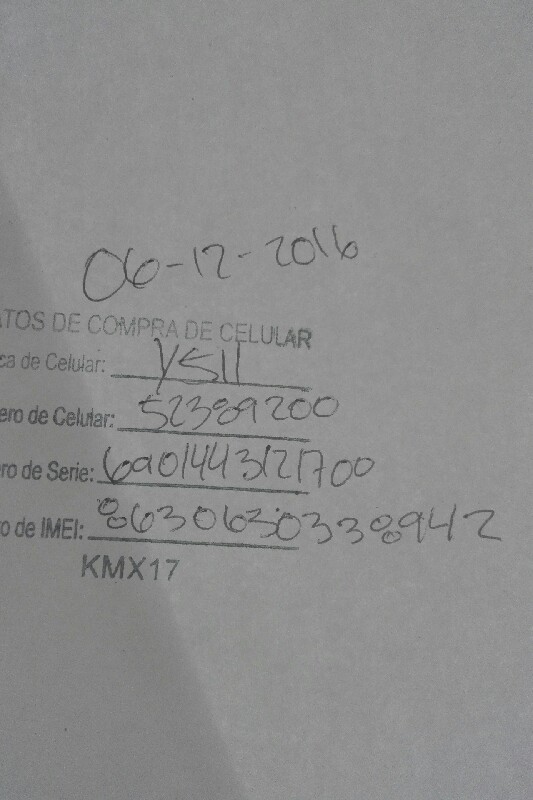 06-12-2016
ATOS DE COMPRA DE CELULAR
ca de Celular: Y511
ero de Celular: 52389200
ro de Serie: 6901443121700
o de IMEI: 8630630338942
KMX17